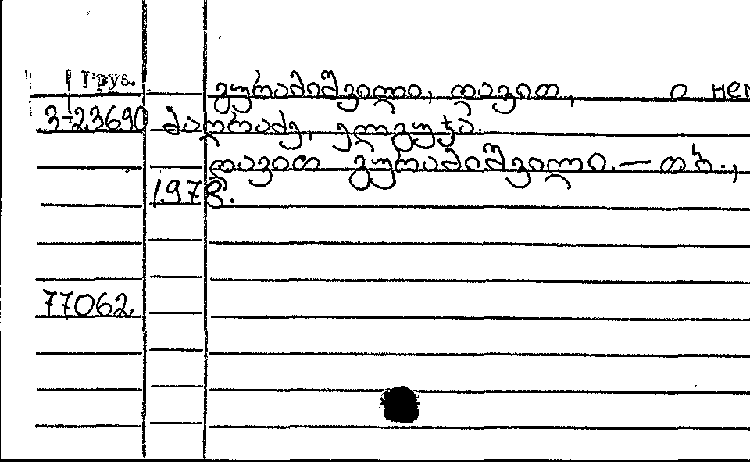 Груз.
გურამიშვილი, დავით, о нем
3-23690 მაღრაძე, ელგუჯა.
დავით გურამიშვილი. — თბ.,
1978.
77062